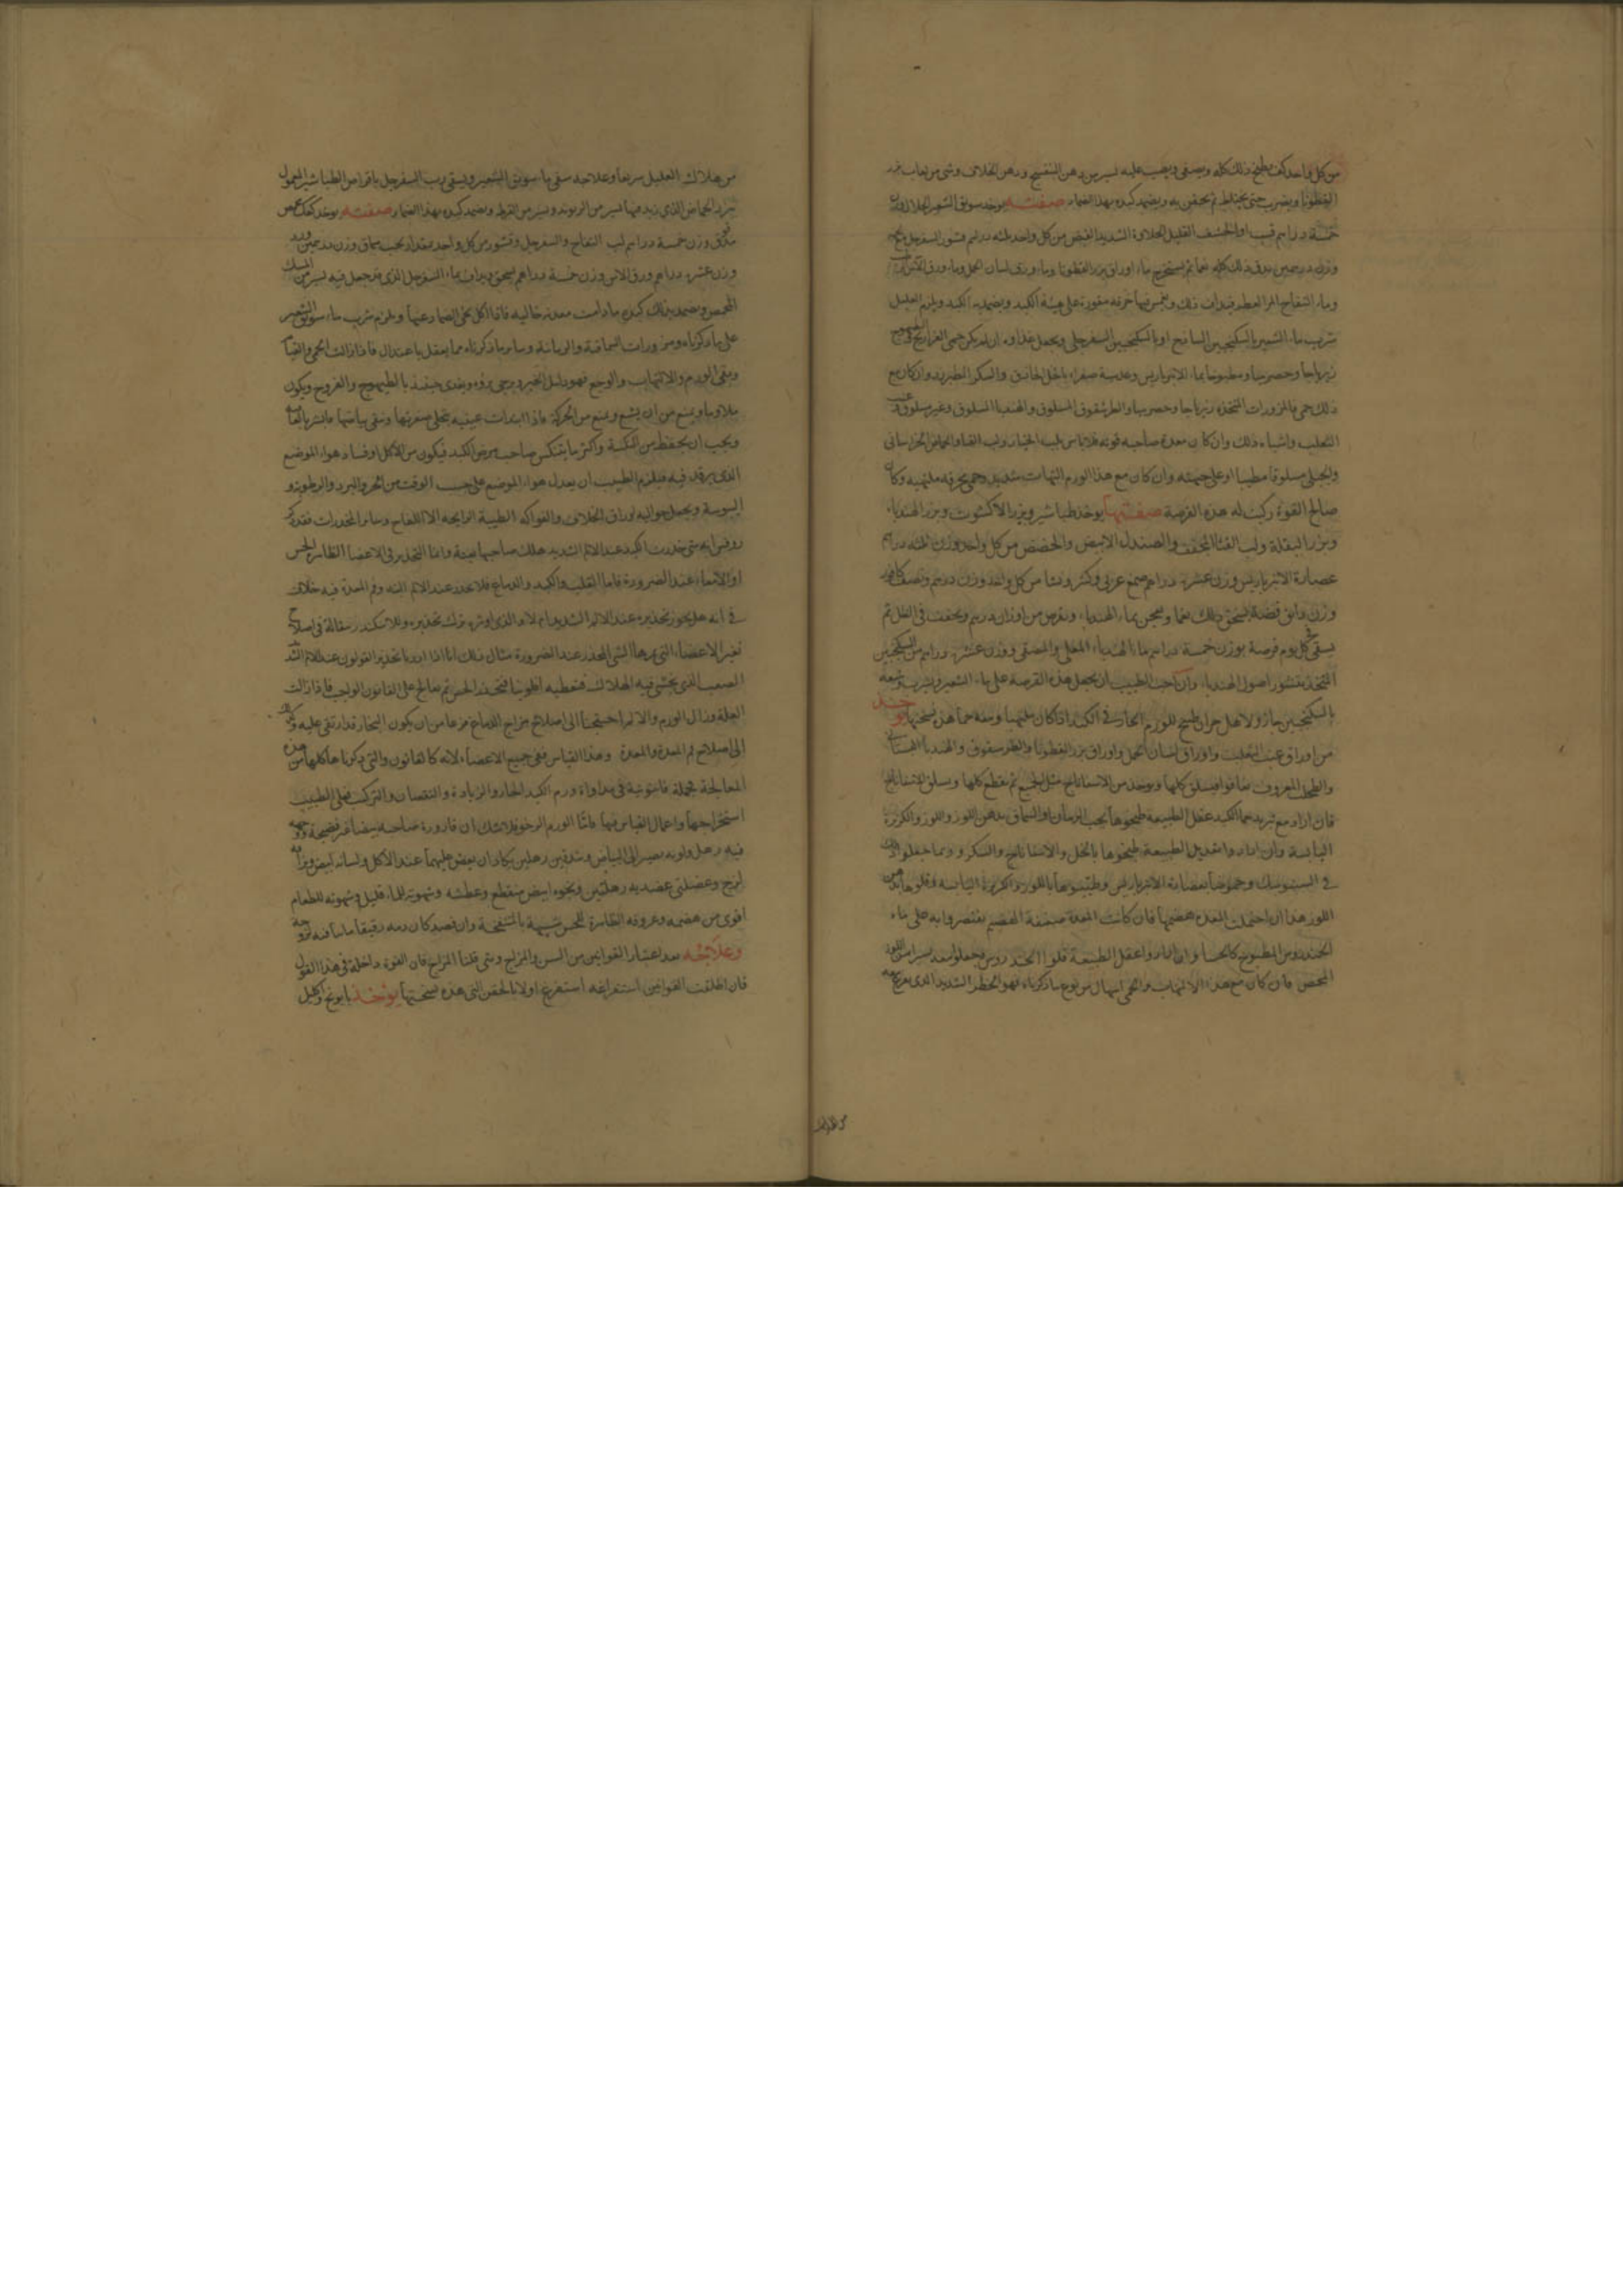 من كل واحد كف يطبخ ذلك كله ويصفى ويصب عليه يسير من دهن البنفسج ودهن الخلاف وشئ من لعاب بزر
القطونا ويضرب حتى يختلط ثم يحقن به ويضمد كبده بهذا الضماد صفته يوخذ سويق الشعير الحلال وزن
خمسة دراهم قسب او الحشف القليل الحلاوة الشديد القبض من كل واحد ثلثه دراهم قشور السفرجل
وزن درهمين يدق ذلك كله نعما ثم يستخرج ماء اوراق بزر القطونا وماء ورق لسان الحمل وماء ورق الآس
وماء التفاح المز العطر فيداف ذلك ويغمس فيها خرقة مقورة على هيئة الكبد ويضمد به الكبد ويلزم العليل
شرب ماء الشعير بالسكنجبين الساذج او بالسكنجبين السفرجلى ويجعل غذاوه ان لم يكن حمى الفراريج
زيرباجا وحصرميا ومطبوخا بماء الانبرباريس وعدسية صفراء بالخل الحاذق والسكر الطبرزد وان كان مع
ذلك حمى فالمزورات المتخذة زيرباجا وحصرميا والطرشقوق المسلوق والهندبا المسلوق وغير مسلوق وعنب
الثعلب واشباه ذلك وان كان معدة صاحبه قوية فلا باس بلب الخيار ولب القثا والخراسانى
مسلوقا مطيبا او على جهته وان كان مع هذا الورم التهاب شديد وحمى محرقة ملتهبة وكان
صالح القوة ركبت له هذه القرصة صفتها يوخذ طباشير وبزر الاكشوث وبزر الهندبا
وبزر البقلة ولب القثا المجفف والصندل الابيض والحضض من كل واحد وزن ثلثه دراهم
عصارة الانبرباريس وزن عشرة دراهم صمغ عربى وكثيرا ونشا من كل واحد وزن درهم ونصف كافور
وزن دانق فضة يسحق ذلك نعما ويعجن بماء الهندبا ويقرص من اوزان درهم ويجفف فى الظل ثم
يسقى كل يوم قرصة بوزن خمسة دراهم ماء الهندباء المغلى والمصفى ووزن عشرة دراهم من السكنجبين
المتخذ بقشور اصول الهندبا وان احب الطبيب ان يجعل هذه القرصة على ماء الشعير ويشرب
بالسكنجبين جاز ولاهل حران طبيخ للورم الحار فى الكبد اذا كان ملتهبا ومعه حما هذه نسختها يوخذ
من اوراق عنب الثعلب واوراق لسان الحمل واوراق بزر القطونا والطرسقوق والهندبا البستانى
المعروف فيسلق كلها ويوخذ من الاسفاناخ مثل الجميع ثم يقطع كلها ويسلق الاسفاناخ
فان اراد مع تبريد حما الكبد عقل الطبيعة طبخوها بحب الرمان او السماق بدهن اللوز واللوز والكزبرة
اليابسة وان ارادوا تعديل الطبيعة طبخوها بالخل والاسفاناخ والسكر وربما جعلوا
فى السنبوسك وحمضها بعصارة الانبرباريس وطيبوها باللوز والكزبرة اليابسة وقلوها بدهن
اللوز هذا ان احتملت المعدة هضمها فان كانت المعدة ضعيفة الهضم يقتصروا به على ماء
الخندروس المطبوخ كالحسا وان ارادوا عقل الطبيعة قلوا الخندروس وجعلوا معه يسيرا من اللوز
المحمص فان كان مع هذا الالتهاب والحمى اسهال من نوع ما ذكرناه فهو الخطر الشديد الذى يفزع معه
من هلاك العليل سريعا وعلاجه سقى ماء سويق الشعير ويسقى رب السفرجل باقراص الطباشير المعمول
ببزر الحماض الذى زيد فيها يسير من الريوند ويسير من القرظ ويضمد كبده بهذا الضماد صفته يوخذ كعك
وزن خمسة دراهم لب التفاح والسفرجل وقشور من كل واحد بمقدار يجب سماق وزن درهمين ورد
وزن عشرة دراهم ورق الاس وزن خمسة دراهم يسحق ويداف بماء السفرجل الذى قد جعل فيه يسير من المسك
ويضمد بذلك كبده ما دامت معدته خالية فاذا اكل نحى الضماد عنها ويلزم شرب ماء سويق الشعير
على ما ذكرناه ومزورات السماقية والرمانية وساير ما ذكرناه مما يعقل باعتدال فاذا زالت الحمى والقيام
وبقى الورم والالتهاب والوجع فهو دليل الخير ويرجى برؤه ويغذى حينئذ بالطيهوج والفروج ويكون
ويمنع من ان يشبع ويمنع من الحركة فاذا ابتدات عينيه تنجلى صفرتها ونقى بياضها فابشر بالعافية
ويجب ان يحفظ من النكسة واكثر ما ينتكس صاحب مرض الكبد فيكون من الاكل او فساد هواء الموضع
الذى يرقد فيه فيلزم الطبيب ان يعدل هواء الموضع على حسب الوقت من الحر والبرد والرطوبة و
اليبوسة ويجعل حواليه اوراق الخلاف والفواكه الطيبة الرايحة الا اللفاح وساير المخدرات فقد ذكر
روفس انه متى خدرت الكبد عند الالم الشديد هلك صاحبها بغتة وانما التخدير فى الاعضا الظاهر الحس
او الامعاء عند الضرورة فاما القلب والكبد والدماغ فلا يخدر عند الالم البتة وفم المعدة فيه خلاف
فى انه هل يجوز تخديره عند الالم الشديد ام لا والذى اوثره ترك تخديره وللاسكندر مقالة فى اصلاح
تغير الاعضاء التى غيرها الشئ المخدر عند الضرورة مثال ذلك انا اذا اردنا تخدير القولون عند الالم الشديد
الصعب الذى يخشى فيه الهلاك فنعطيه افلونيا فتخدر الحس ثم نعالج على القانون الواجب فاذا زالت
العلة وزال الورم والالم احتجنا الى اصلاح مزاج الدماغ فزعا من ان يكون البخار قد ارتقى عليه
الى اصلاح فم المعدة والمعدة وهذا القياس ففى جميع الاعضاء لانه كالقانون والتى ذكرناها كلها من هذه
المعالجة جملة قانونية فى مداواة ورم الكبد الحار والزيادة والنقصان والتركيب فعلى الطبيب
استخراجها واعمال القياس فيها فاما الورم الرخو فلا شك ان قارورة صاحبه بيضا غير نضيجة ووجهه
فيه رهل ولونه يصير الى البياض وشدقين رهلين يكاد ان يعض عليهما عند الاكل ولسانه ابيض
لزج وعضلتى عضديه رهلتين ونحوه ابيض منقطع وعطشه وشهوته للماء قليل وشهوته للطعام
اقوى من هضمه وعروقه الظاهرة للحس شبيهة بالمنتفخة وان فصد كان دمه رقيقا مائيا فيه لزوجة
وعلاجه بعد اعتبار القوانين من السن والمزاج ومتى قلنا المزاج فان القوة داخلة فى هذا القول
فان اطلقت القوانين استفراغه استفرغ اولا بالحقن التى هذه نسختها يؤخذ بابونج واكليل